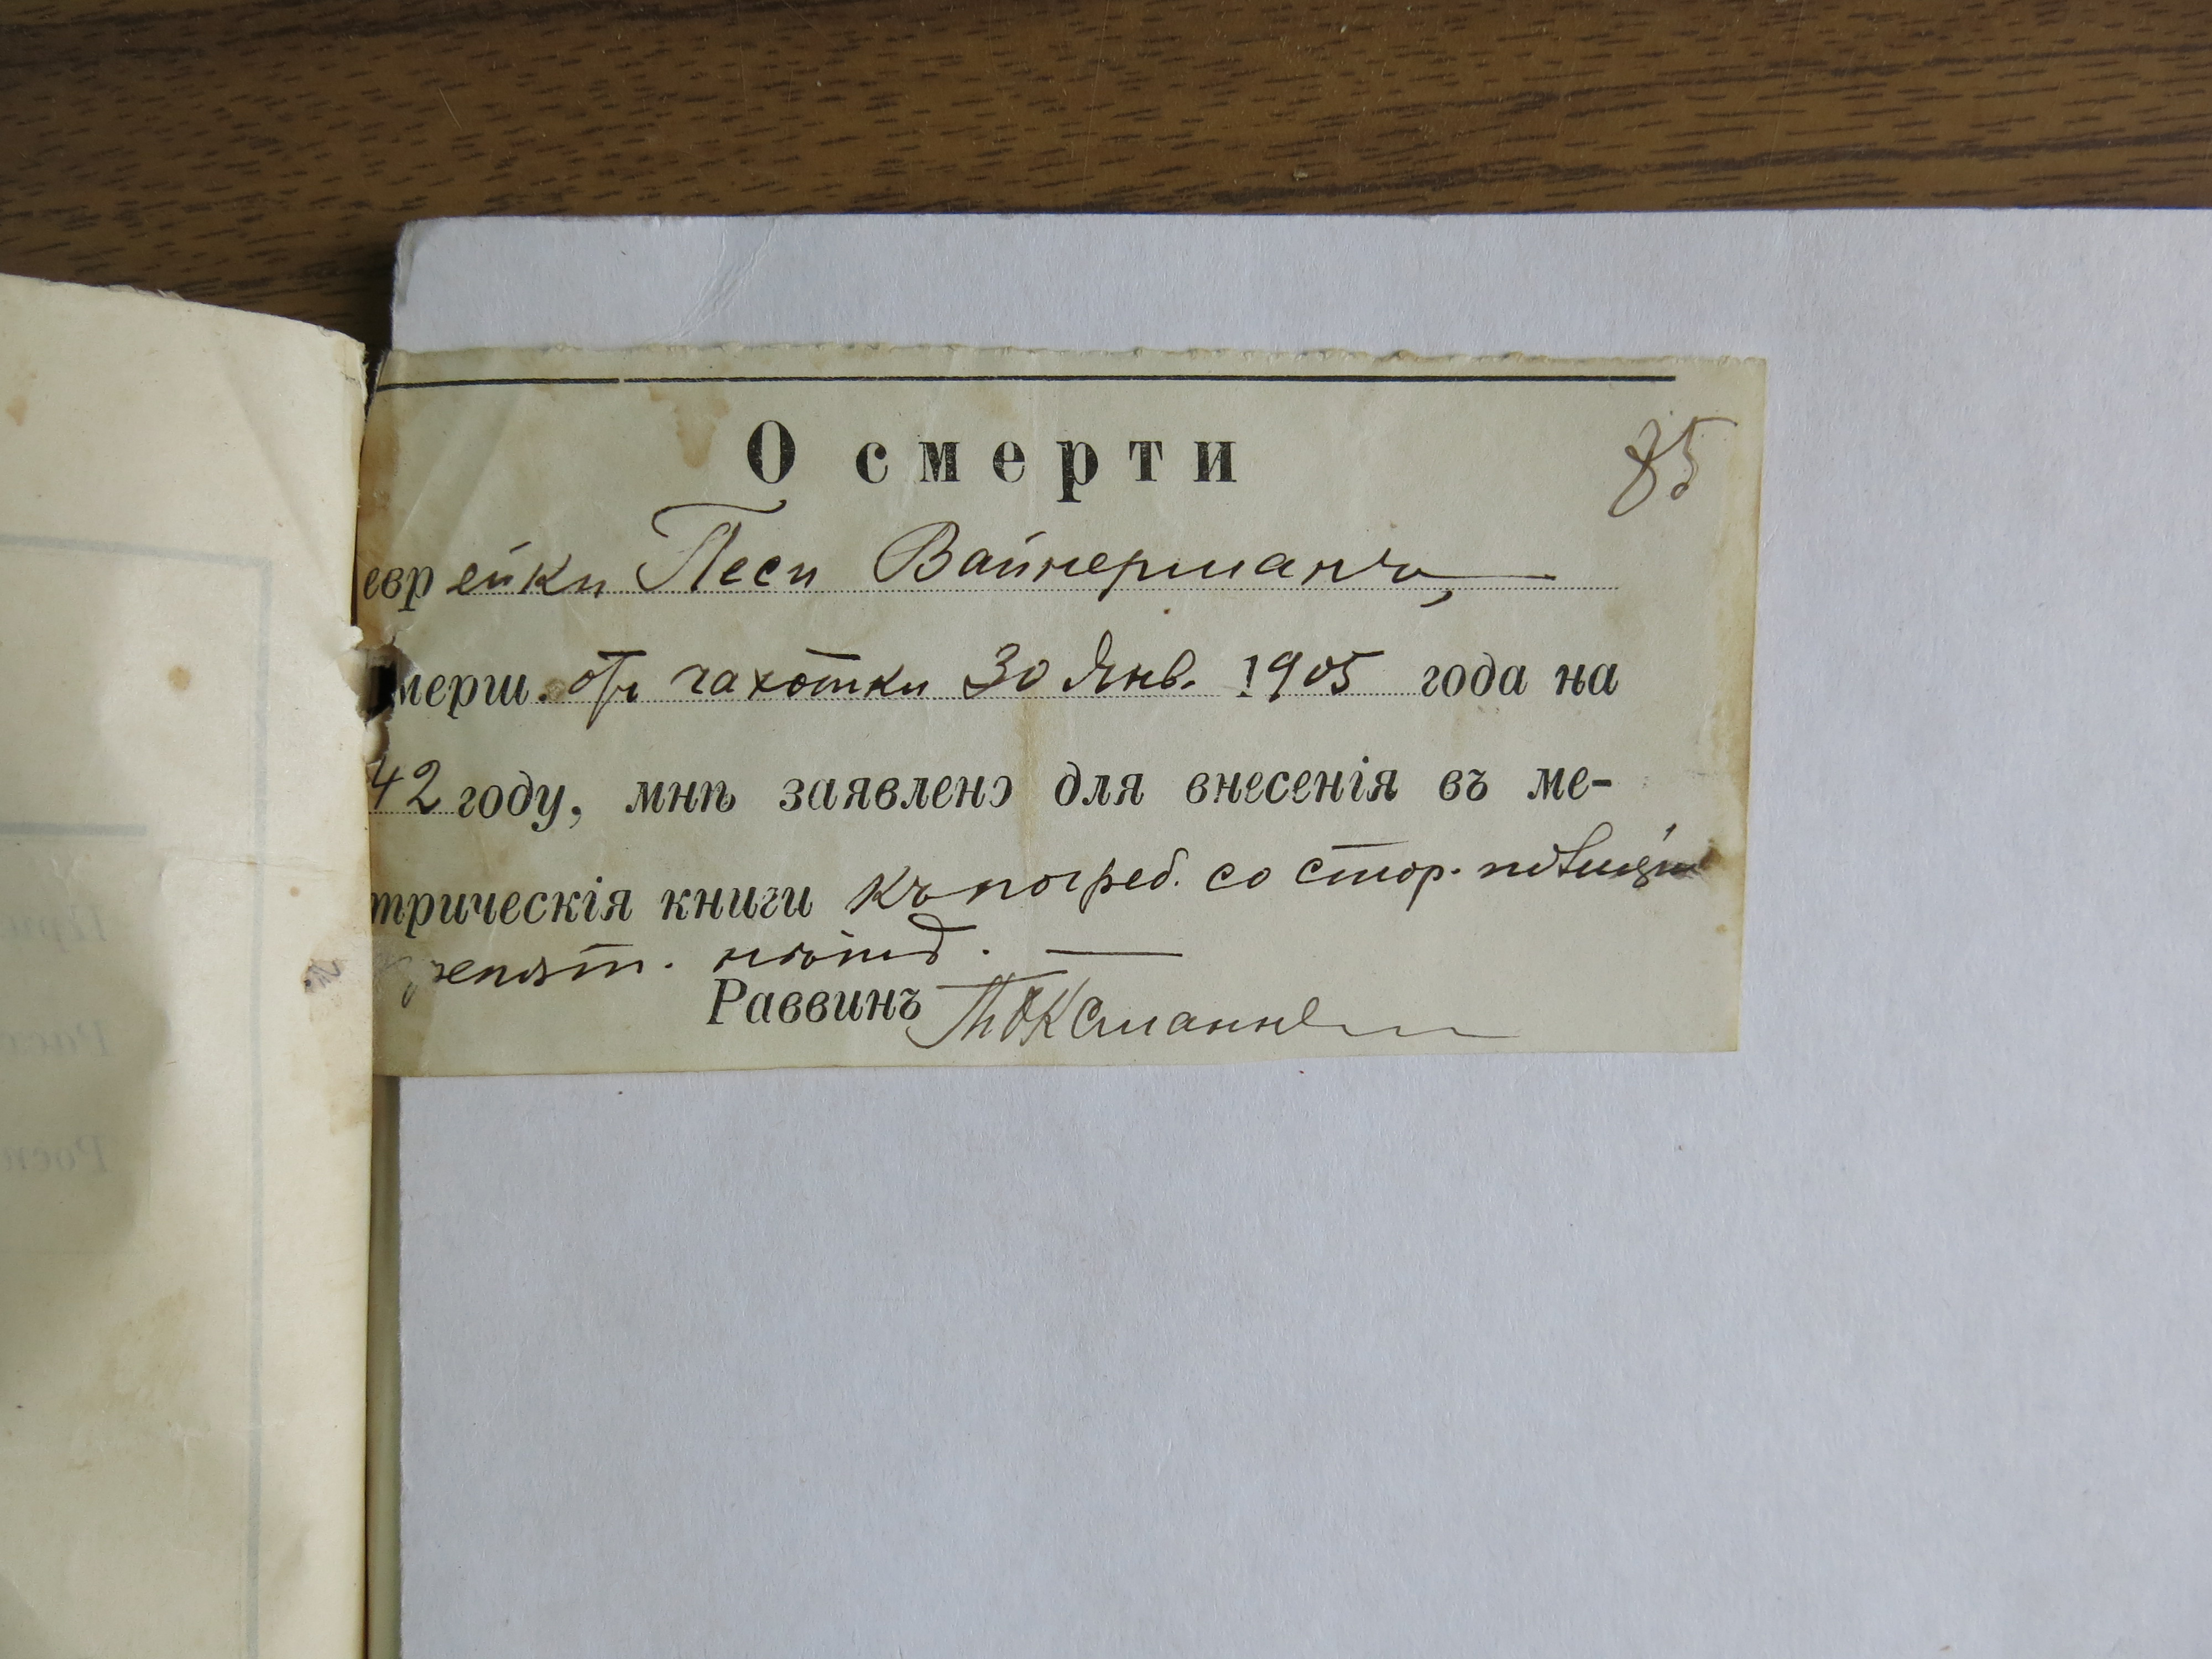 О смерти
85
еврейки Песи Вайнерманъ,
мерш. отъ чахотки 30 Янв. 1905 года на
42 году, мнѣ заявлено для внесенія въ ме-
трическія книги къ погреб. со стор. полиціи
препят.
Раввинъ